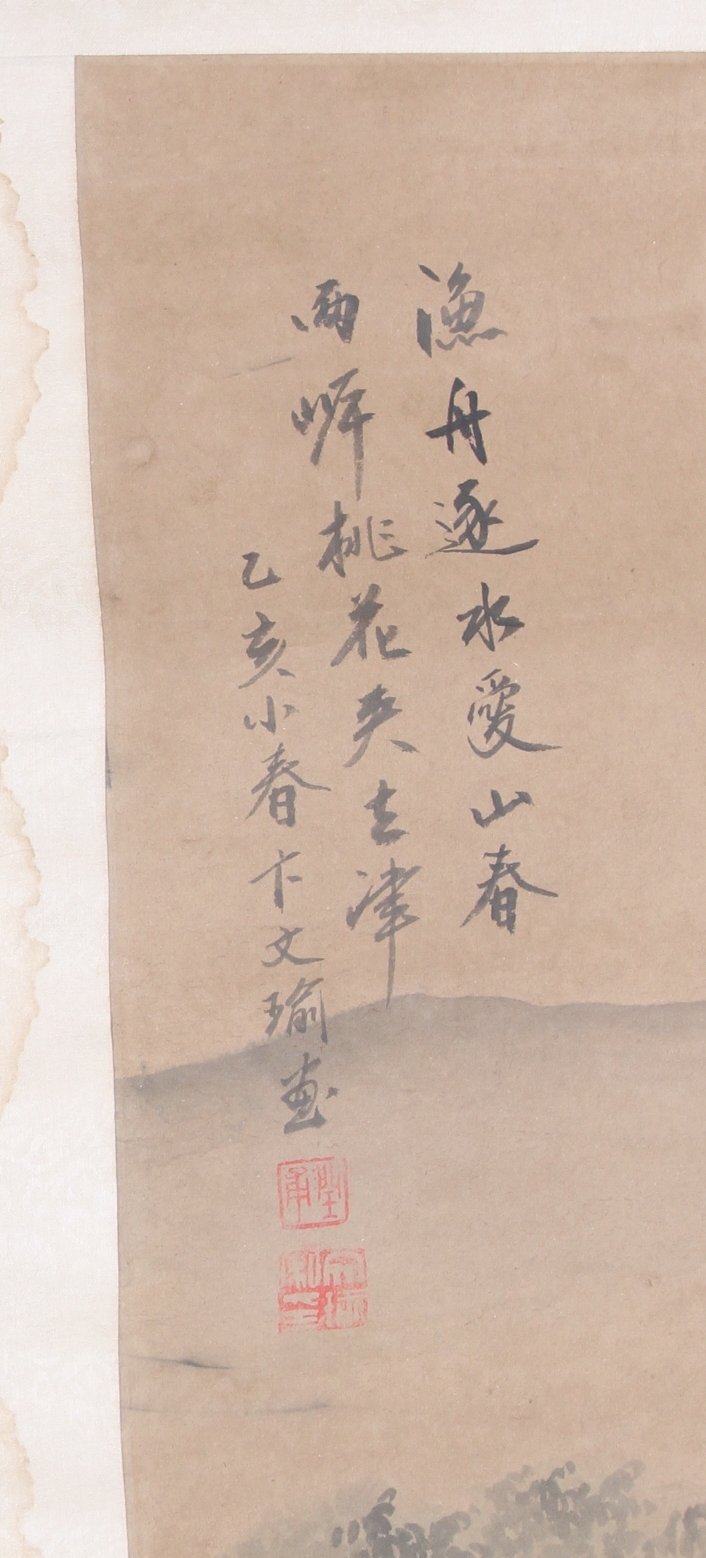 漁舟逐水愛山春
兩岸桃花夾去津
乙亥小春卞文瑜画